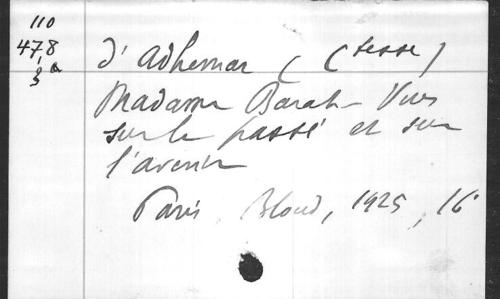 110
478
d'Adhemar (Ctesse)
Madame Barat - Vues
sur le passé et sur
l'avenir
Paris, Bloud, 1925, 16°